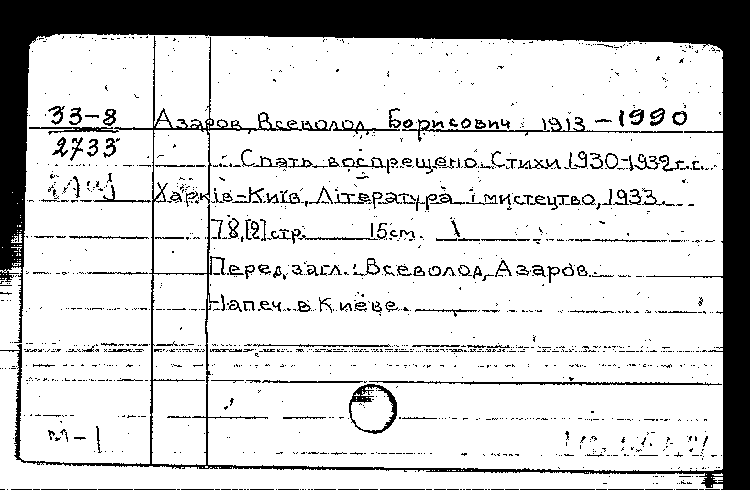 33-8
2733
Азаров, Всеволод Борисович, 1913 – 1990
Спать воспрещено. Стихи 1930-1932 г.г.
Харків-Київ, Література і мистецтво, 1933.
78,[2] стр. 15 cm.
Перед загл.: Всеволод Азаров.
Напеч. в Киеве.
м-1